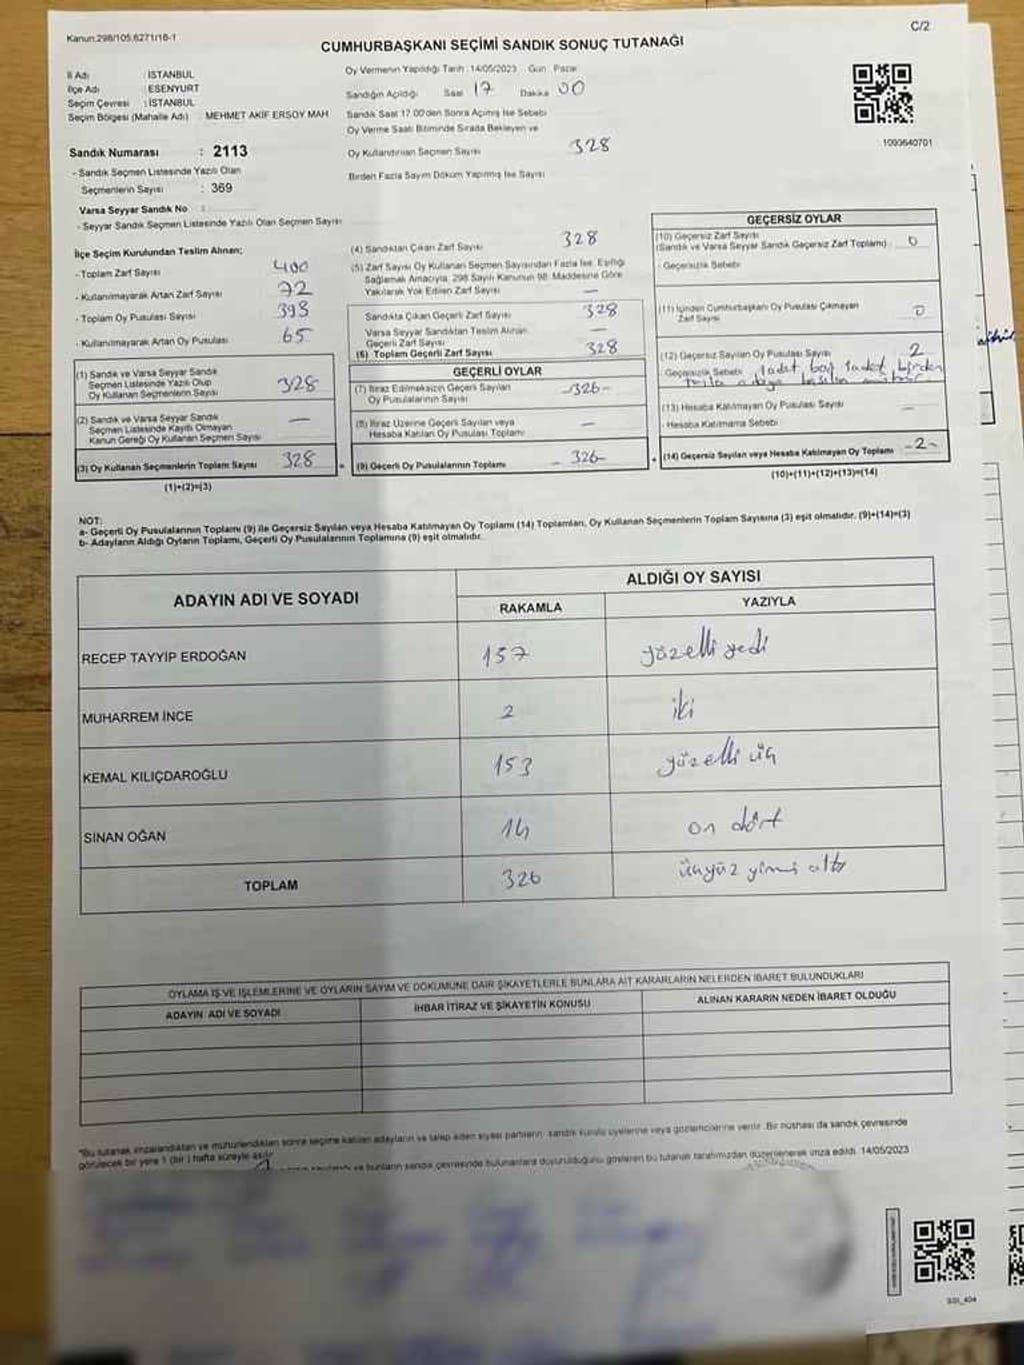 Kanun:298/105,6271/16-1
C/2
CUMHURBAŞKANI SEÇİMİ SANDIK SONUÇ TUTANAĞI
İl Adı : İSTANBUL
İlçe Adı : ESENYURT
Seçim Çevresi : İSTANBUL
Seçim Bölgesi (Mahalle Adı) MEHMET AKİF ERSOY MAH
Oy Vermenin Yapıldığı Tarih :14/05/2023 Gün : Pazar
Sandığın Açıldığı Saat 17 Dakika 00
Sandık Saat 17.00'den Sonra Açılmış İse Sebebi
Oy Verme Saati Bitiminde Sırada Bekleyen ve
Oy Kullandırılan Seçmen Sayısı 328
Birden Fazla Sayım Döküm Yapılmış İse Sayısı
1093640701
Sandık Numarası : 2113
- Sandık Seçmen Listesinde Yazılı Olan
Seçmenlerin Sayısı : 369
Varsa Seyyar Sandık No :
- Seyyar Sandık Seçmen Listesinde Yazılı Olan Seçmen Sayısı
İlçe Seçim Kurulundan Teslim Alınan;
- Toplam Zarf Sayısı 400
- Kullanılmayarak Artan Zarf Sayısı 72
- Toplam Oy Pusulası Sayısı 393
- Kullanılmayarak Artan Oy Pusulası 65
(1) Sandık ve Varsa Seyyar Sandık
Seçmen Listesinde Yazılı Olup
Oy Kullanan Seçmenlerin Sayısı 328
(2) Sandık ve Varsa Seyyar Sandık
Seçmen Listesinde Kayıtlı Olmayan
Kanun Gereği Oy Kullanan Seçmen Sayısı —
(3) Oy Kullanan Seçmenlerin Toplam Sayısı 328
(1)+(2)=(3)
(4) Sandıktan Çıkan Zarf Sayısı 328
(5) Zarf Sayısı Oy Kullanan Seçmen Sayısından Fazla İse, Eşitliği
Sağlamak Amacıyla, 298 Sayılı Kanunun 98. Maddesine Göre
Yakılarak Yok Edilen Zarf Sayısı —
Sandıkta Çıkan Geçerli Zarf Sayısı 328
Varsa Seyyar Sandıktan Teslim Alınan
Geçerli Zarf Sayısı —
(6) Toplam Geçerli Zarf Sayısı 328
GEÇERLİ OYLAR
(7) İtiraz Edilmeksizin Geçerli Sayılan
Oy Pusulalarının Sayısı -326-
(8) İtiraz Üzerine Geçerli Sayılan veya
Hesaba Katılan Oy Pusulası Toplamı —
= (9) Geçerli Oy Pusulalarının Toplamı - 326-
GEÇERSİZ OYLAR
(10) Geçersiz Zarf Sayısı
(Sandık ve Varsa Seyyar Sandık Geçersiz Zarf Toplamı) 0
- Geçersizlik Sebebi
(11) İçinden Cumhurbaşkanı Oy Pusulası Çıkmayan
Zarf Sayısı 0
(12) Geçersiz Sayılan Oy Pusulası Sayısı 2
- Geçersizlik Sebebi 1 adet boş 1 adet birden
fazla adaya basılan
(13) Hesaba Katılmayan Oy Pusulası Sayısı —
- Hesaba Katılmama Sebebi
+ (14) Geçersiz Sayılan veya Hesaba Katılmayan Oy Toplamı -2-
(10)+(11)+(12)+(13)=(14)
NOT:
a- Geçerli Oy Pusulalarının Toplamı (9) ile Geçersiz Sayılan veya Hesaba Katılmayan Oy Toplamı (14) Toplamları, Oy Kullanan Seçmenlerin Toplam Sayısına (3) eşit olmalıdır. (9)+(14)=(3)
b- Adayların Aldığı Oyların Toplamı, Geçerli Oy Pusulalarının Toplamına (9) eşit olmalıdır.
ADAYIN ADI VE SOYADI
ALDIĞI OY SAYISI
RAKAMLA YAZIYLA
RECEP TAYYİP ERDOĞAN 157 yüzelli yedi
MUHARREM İNCE 2 iki
KEMAL KILIÇDAROĞLU 153 yüzelli üç
SİNAN OĞAN 14 on dört
TOPLAM 326 üçyüz yirmi altı
OYLAMA İŞ VE İŞLEMLERİNE VE OYLARIN SAYIM VE DÖKÜMÜNE DAİR ŞİKAYETLERLE BUNLARA AİT KARARLARIN NELERDEN İBARET BULUNDUKLARI
ADAYIN ADI VE SOYADI İHBAR İTİRAZ VE ŞİKAYETİN KONUSU ALINAN KARARIN NEDEN İBARET OLDUĞU
"Bu tutanak imzalandıktan ve mühürlendikten sonra seçime katılan adayların ve talep eden siyasi partilerin sandık kurulu üyelerine veya gözlemcilerine verilir. Bir nüshası da sandık çevresinde
görülecek bir yere 1 (bir) hafta süreyle asılır. ve bunların sandık çevresinde bulunanlara duyurulduğunu gösteren bu tutanak tarafımızdan düzenlenerek imza edildi. 14/05/2023